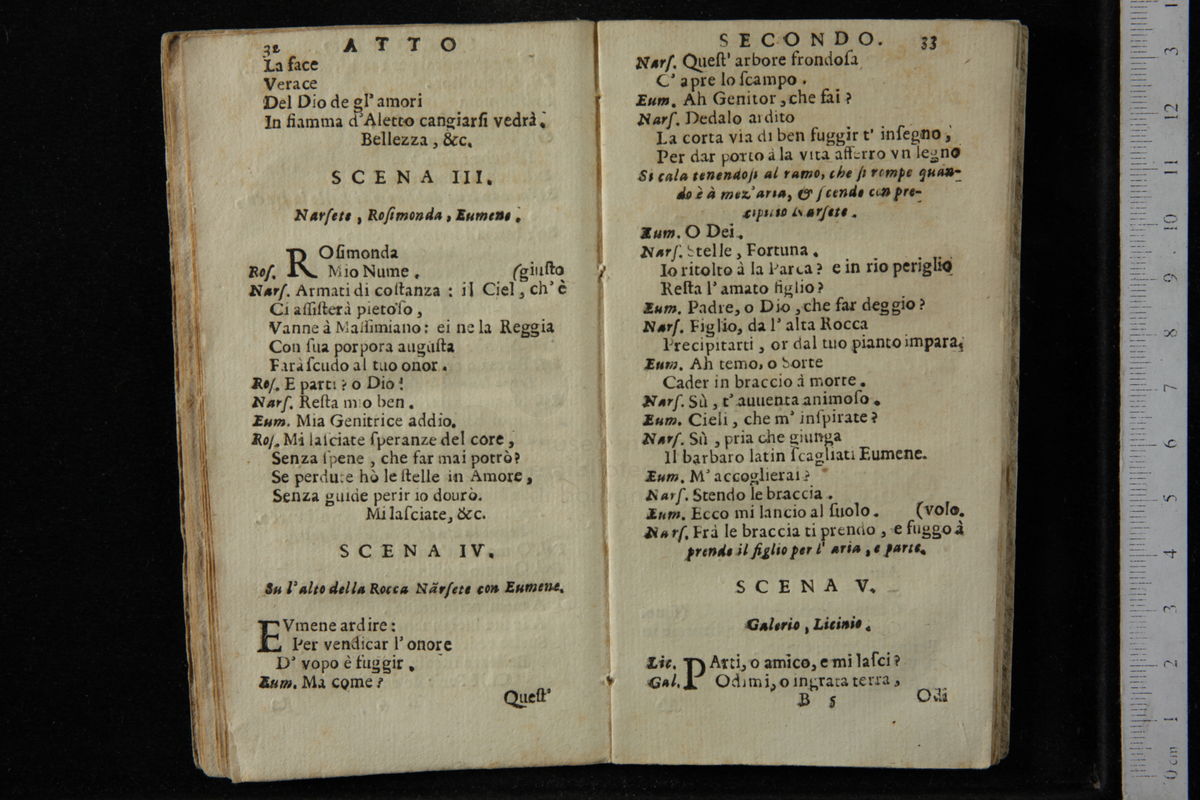 32 ATTO
La face
Verace
Del Dio de gl' amori
In fiamma d'Aletto cangiarſi vedrà.
Bellezza, &c.
SCENA III.
Narſete, Roſimonda, Eumene.
ROſimonda
Roſ. Mio Nume. (giuſto
Narſ. Armati di coſtanza: il Ciel, ch'è
Ci aſſiſterà pietoſo,
Vanne à Maſſimiano: ei ne la Reggia
Con ſua porpora auguſta
Farà ſcudo al tuo onor.
Roſ. E parti? o Dio!
Narſ. Reſta mio ben.
Eum. Mia Genitrice addio.
Roſ. Mi laſciate ſperanze del core,
Senza ſpene, che far mai potrò?
Se perdute hò le ſtelle in Amore,
Senza guide perir io dourò.
Mi laſciate, &c.
SCENA IV.
Su l'alto della Rocca Narſete con Eumene.
EVmene ardire:
Per vendicar l'onore
D' vopo è fuggir.
Eum. Ma come?
Queſt'
SECONDO. 33
Narſ. Queſt' arbore frondoſa
C' apre lo ſcampo.
Eum. Ah Genitor, che fai?
Narſ. Dedalo ardito
La corta via di ben fuggir t' inſegno,
Per dar porto à la vita afferro vn legno
Si cala tenendoſi al ramo, che ſi rompe quan-
do è à mez'aria, & ſcende con pre-
cipitio Narſete.
Eum. O Dei.
Narſ. Stelle, Fortuna.
Io ritolto à la Parca? e in rio periglio
Reſta l' amato figlio?
Eum. Padre, o Dio, che far deggio?
Narſ. Figlio, da l' alta Rocca
Precipitarti, or dal tuo pianto impara.
Eum. Ah temo, o Sorte
Cader in braccio à morte.
Narſ. Sù, t' auuenta animoſo.
Eum. Cieli, che m' inſpirate?
Narſ. Sù, pria che giunga
Il barbaro latin ſcagliati Eumene.
Eum. M' accoglierai?
Narſ. Stendo le braccia.
Eum. Ecco mi lancio al ſuolo. (volo.
Narſ. Frà le braccia ti prendo, e fuggo à
prende il figlio per l' aria, e parte.
SCENA V.
Galerio, Licinio.
Lic. PArti, o amico, e mi laſci?
Gal. Odimi, o ingrata terra,
B 5 Odi
0 cm 1 2 3 4 5 6 7 8 9 10 11 12